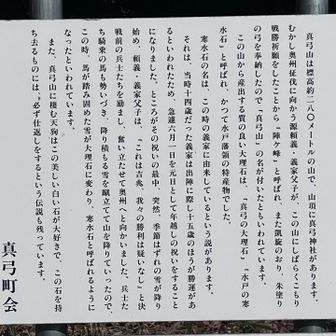 真弓山は標高約二八〇メールの山で、山頂に真弓神社があります。
むかし奥州征伐に向かう源頼義・義家父子が、この山にしばらくこもり
戦勝祈願したことから「陣ケ峰」と呼ばれ、また凱旋のおり、朱塗り
の弓を奉納したので「真弓山」の名が付いたともいわれています。
この山から産出する質の良い大理石は、「真弓の大理石」「水戸の寒
水石」と呼ばれ、かつて水戸藩領の特産物でした。
寒水石の名は、この時の義家に由来しているという説があります。
それは、当時十四歳だった義家は出陣に際し十五歳のほうが勝運があ
るといわれたため、急遽六月一日を元日として年越しの祝いをすること
になりました。ところがその祝いの最中、突然、季節はずれの雪が降り
始め、頼義・義家父子は、「これは吉兆、我々の勝利は疑いなし」と決
戦前の兵士たちを励まし、奮い立たせて奥州へと向かいました。兵士た
ち騎乗の馬も勢いづき、降り積もる雪を蹴立てて山を降りていったので
この時、馬が踏み固めた雪が大理石に変わり、寒水石と呼ばれるように
なったといわれています。
また、真弓山に棲む天狗はこの美しい白い石が大好きで、この石を持
ち去るものには、必ず仕返しをするという伝説も残っています。
真弓町会